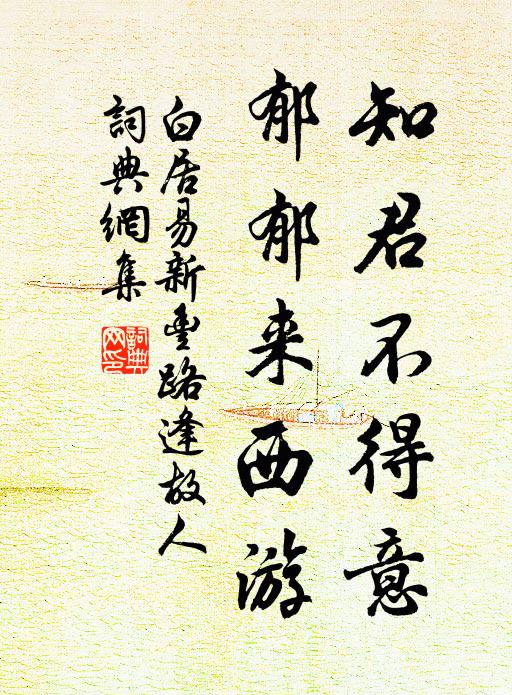 知君不得意
郁郁来西游
白居易新豊路逢故人
詞典網集
詞典
网印